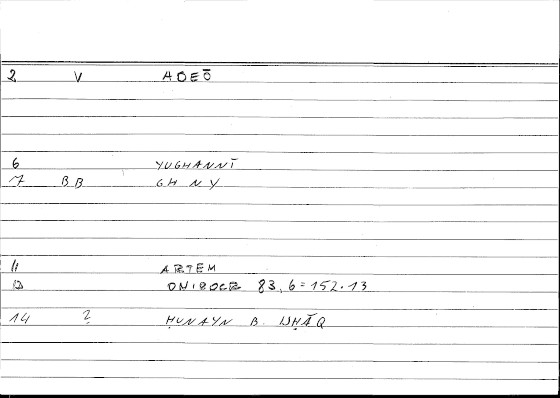 2 V ADEŌ
6 YUGHANNĪ
7 BB GHNY
11 ARTEM
ONIROCR 83,6=152.13
14 ? ḤUNAYN B. ISḤĀQ